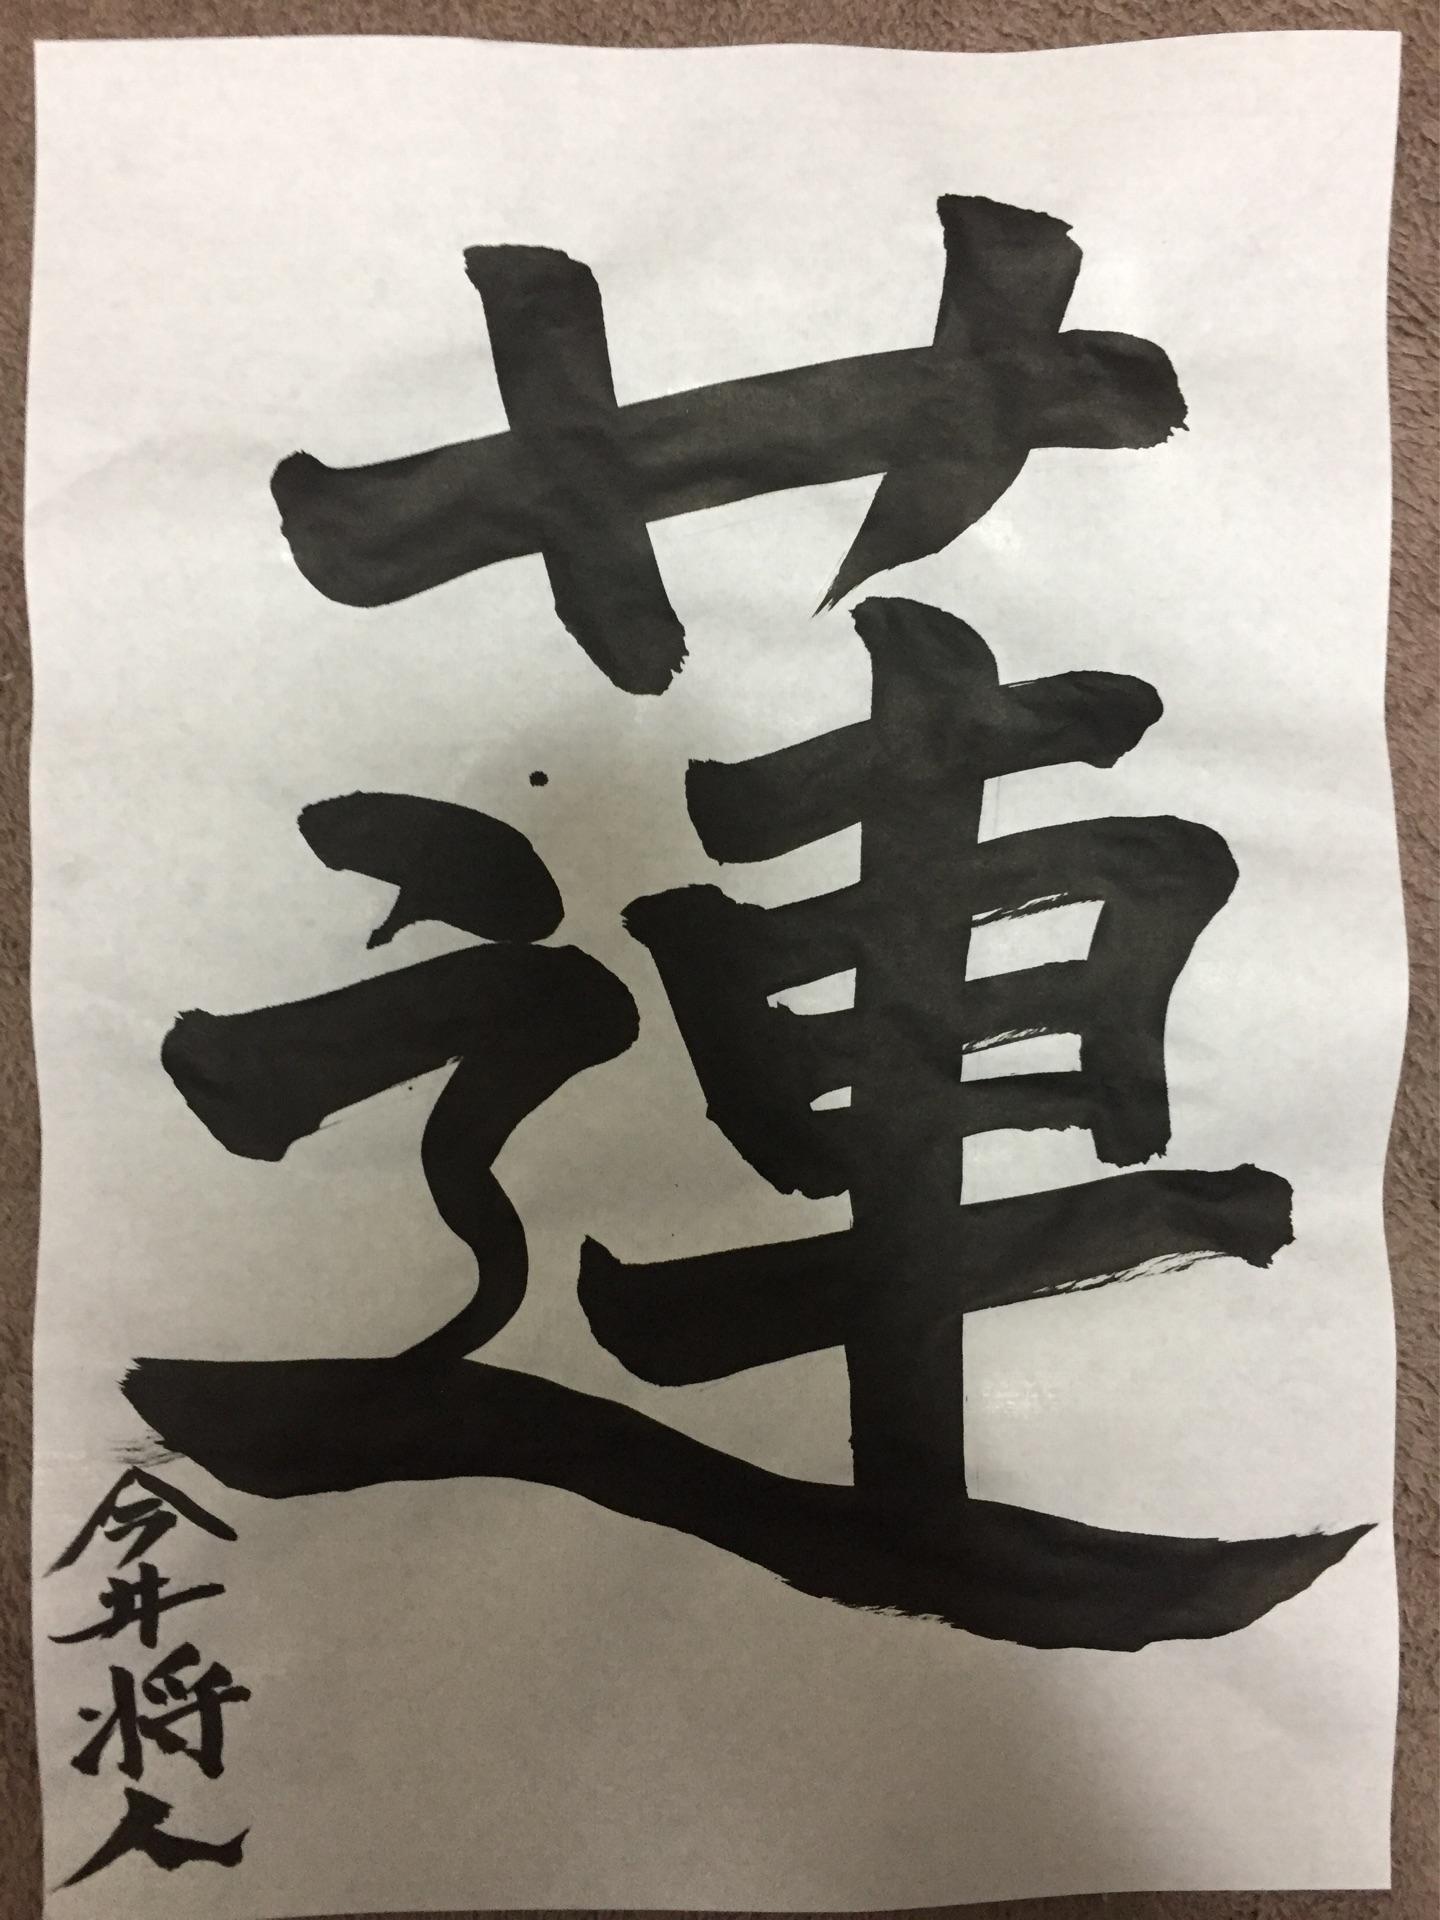 蓮
今井将人